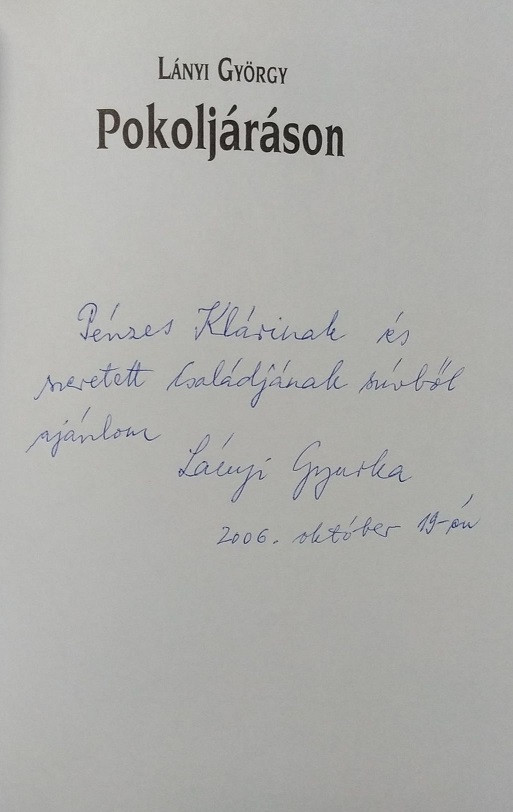 LÁNYI GYÖRGY
Pokoljáráson
Pénzes Klárinak és
szeretett családjának szívből
ajánlom
Lányi Gyurka
2006. október 19-én